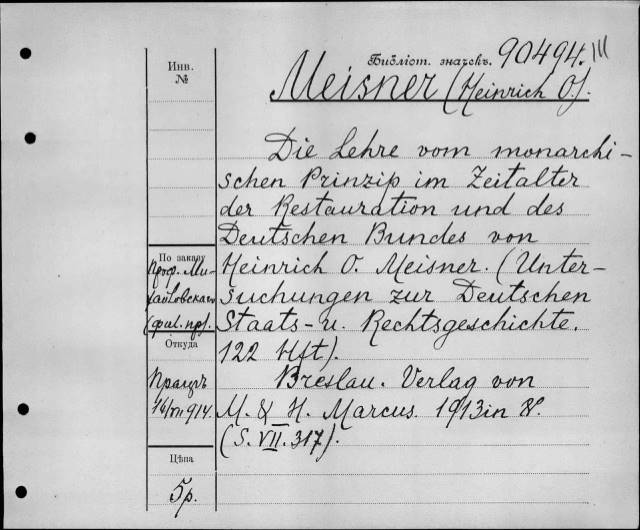 Библіот. значекъ. 90494. III
Инв.
№
Meisner (Heinrich O).
Die Lehre vom monarchi-
schen Prinzip im Zeitalter
der Restauration und des
Deutschen Bundes von
Heinrich O. Meisner. (Unter-
suchungen zur Deutschen
Staats- u. Rechtsgeschichte.
122 Hft).
Breslau. Verlag von
M. & H. Marcus. 1913 in 8º.
(S. VII. 317).
По заказу
Проф. Ми-
хайловскаго
Откуда
16/VII 914.
Цѣна
5 р.